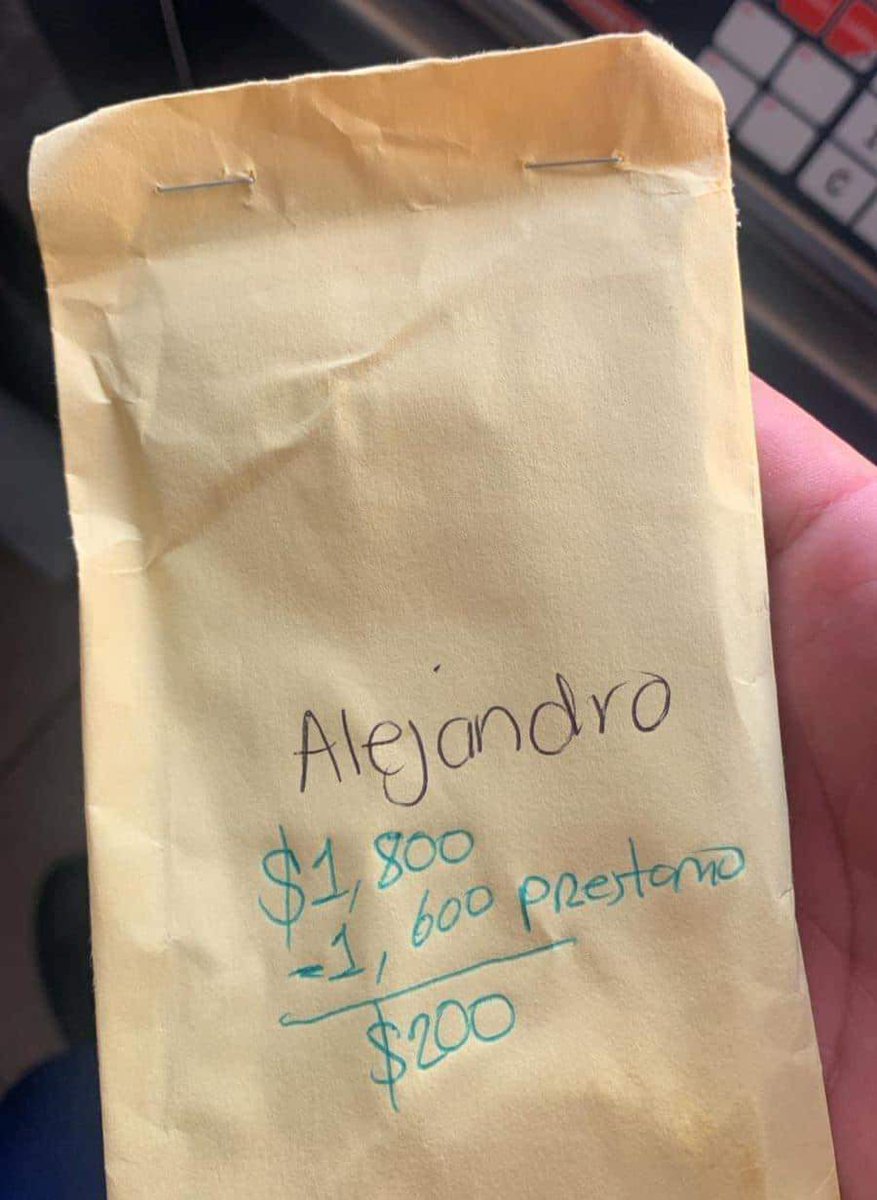 Alejandro
$1,800
-1,600 prestamo
$200
C